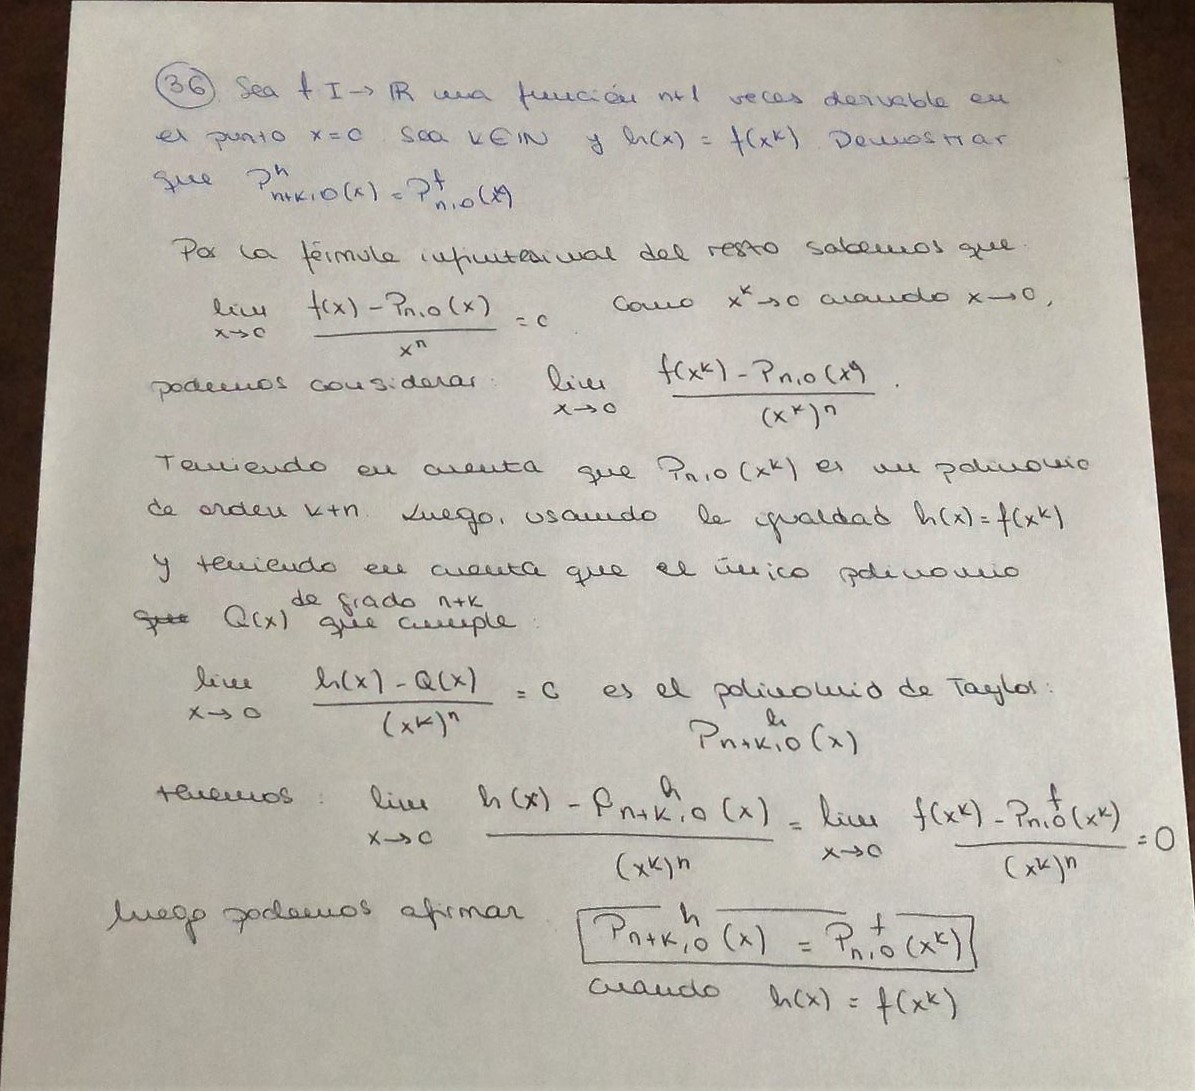 36 Sea f I→ℝ una función n+1 veces derivable en
el punto x=0. Sea k∈ℕ y h(x) = f(x^k) Demostrar
que P^h_{n+k,0}(x) = P^f_{n,0}(x^k)
Por la fórmula infinitesimal del resto sabemos que
lim_{x→0} (f(x) - P_{n,0}(x))/x^n = 0. Como x^k→0 cuando x→0,
podemos considerar: lim_{x→0} (f(x^k) - P_{n,0}(x^k))/(x^k)^n.
Teniendo en cuenta que P_{n,0}(x^k) es un polinomio
de orden k+n. Luego, usando la igualdad h(x) = f(x^k)
y teniendo en cuenta que el único polinomio
de grado n+k
que Q(x) que cumple:
lim_{x→0} (h(x) - Q(x))/(x^k)^n = 0 es el polinomio de Taylor:
P^h_{n+k,0}(x)
tenemos: lim_{x→0} (h(x) - P^h_{n+k,0}(x))/(x^k)^n = lim_{x→0} (f(x^k) - P^f_{n,0}(x^k))/(x^k)^n = 0
luego podemos afirmar P^h_{n+k,0}(x) = P^f_{n,0}(x^k)
cuando h(x) = f(x^k)